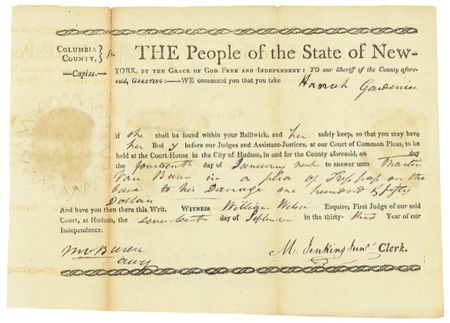 COLUMBIA COUNTY, } ss. THE People of the State of New-
—Capias.— YORK, BY THE GRACE OF GOD FREE AND INDEPENDENT: TO our Sheriff of the County afore-
said, GREETING:—WE command you that you take Hannah Gardenier
if she shall be found within your Bailiwick, and her safely keep, so that you may have
her Body before our Judges and Assistant-Justices, at our Court of Common Pleas, to be
held at the Court-House in the City of Hudson, in and for the County aforesaid, on day
the fourteenth day of January next to answer unto
Van Buren in a plea of Trespass on the
Case to his Damage one hundred & fifty
Dollars
And have you then there this Writ. WITNESS William Wilson Esquire, First Judge of our said
Court, at Hudson, the day of in the thirty- third Year of our
Independence.
M V Buren
Atty
M. Jenkins Junr Clerk.